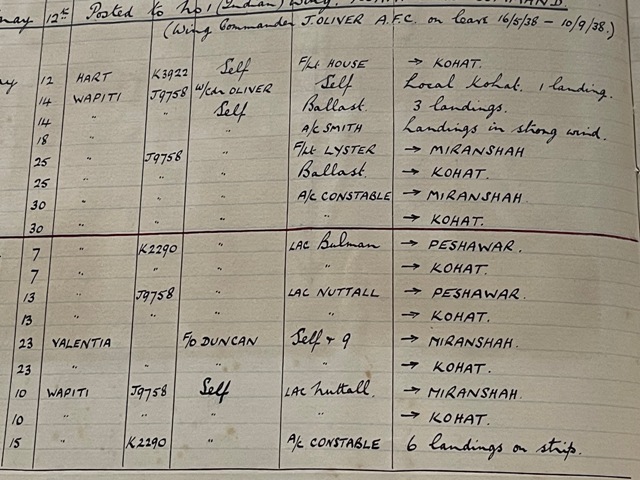 may 12th Posted to No 1 (Indian) Wing.
(Wing Commander J. OLIVER A.F.C. on leave 16/5/38 – 10/9/38.)
12 HART K3922 Self F/Lt HOUSE → KOHAT.
14 WAPITI J9758 W/Cdr OLIVER Self Local Kohat. 1 landing.
14 " " Self Ballast. 3 landings.
18 " " A/C SMITH Landings in strong wind.
25 " J9758 " F/Lt LYSTER → MIRANSHAH
25 " " " Ballast. → KOHAT.
30 " " " A/C CONSTABLE → MIRANSHAH.
30 " " " " → KOHAT.
7 " K2290 " LAC Bulman → PESHAWAR.
7 " " " " → KOHAT.
13 " J9758 " LAC NUTTALL → PESHAWAR.
13 " " " " → KOHAT.
23 VALENTIA F/O DUNCAN Self + 9 → MIRANSHAH.
23 " " " → KOHAT.
10 WAPITI J9758 Self LAC Nuttall. → MIRANSHAH.
10 " " " " → KOHAT.
15 " K2290 " A/C CONSTABLE 6 landings on strip.